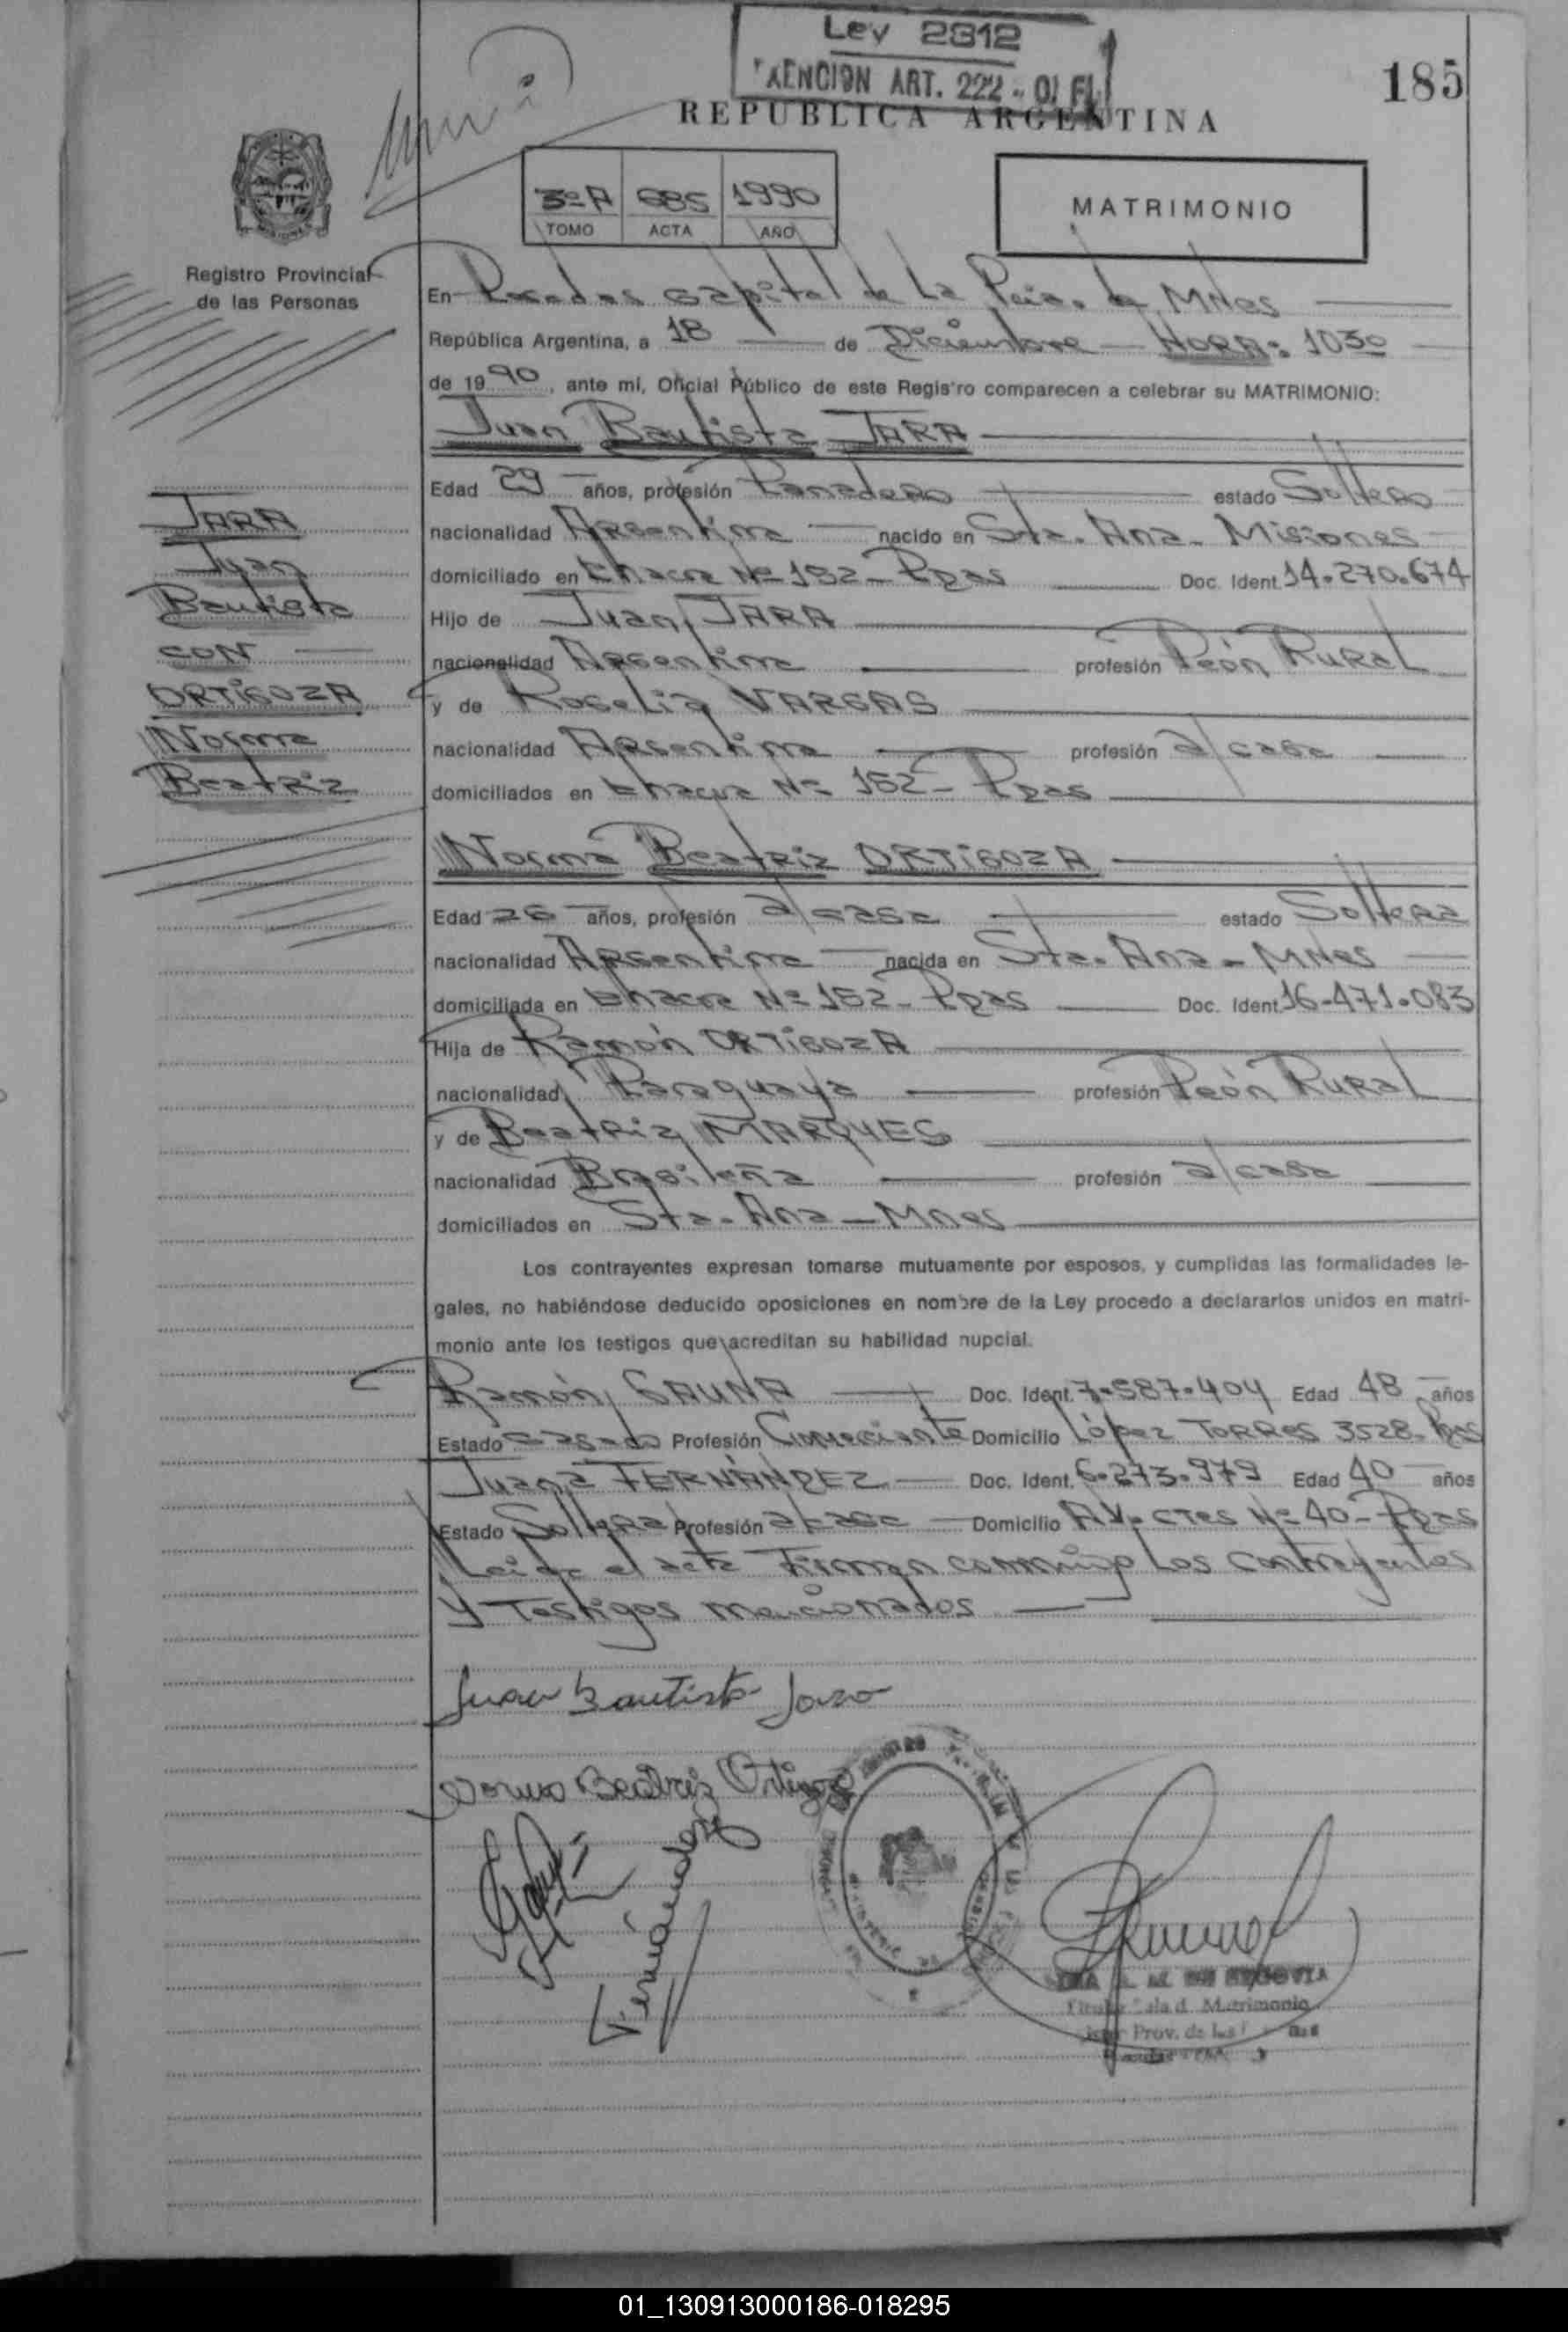 Ley 2312
EXENCION ART. 222
185
REPUBLICA ARGENTINA
3º A 685 1990
TOMO ACTA AÑO
MATRIMONIO
Registro Provincial
de las Personas
En Posadas capital de La Pcia. de Mnes
República Argentina, a 18 de Diciembre HORA: 1030
de 1990, ante mi, Oficial Público de este Registro comparecen a celebrar su MATRIMONIO:
Juan Bautista JARA
Edad 29 años, profesión Panadero estado Soltero
nacionalidad Argentina nacido en Sta. Ana - Misiones
domiciliado en Chacra Nº 192 - Pdas Doc. Ident. 14.270.674
Hijo de Juan JARA
nacionalidad Argentina profesión Peón Rural
y de Roselia VARGAS
nacionalidad Argentina profesión a/casa
domiciliados en Chacra Nº 152 - Pdas
JARA
Juan
Bautista
CON
ORTIGOZA
Norma
Beatriz
Norma Beatriz ORTIGOZA
Edad 26 años, profesión a/casa estado Soltera
nacionalidad Argentina nacida en Sta. Ana - Mnes
domiciliada en Chacra Nº 152 - Pdas Doc. Ident. 16.471.083
Hija de Ramón ORTIGOZA
nacionalidad Paraguaya profesión Peón Rural
y de Beatriz MARQUES
nacionalidad Brasileña profesión a/casa
domiciliados en Sta. Ana - Mnes
Los contrayentes expresan tomarse mutuamente por esposos, y cumplidas las formalidades le-
gales, no habiéndose deducido oposiciones en nombre de la Ley procedo a declararlos unidos en matri-
monio ante los testigos que acreditan su habilidad nupcial.
Ramón GAUNA Doc. Ident. 7.587.404 Edad 48 años
Estado casado Profesión Comerciante Domicilio López Torres 3528 - Pdas
Juana FERNÁNDEZ Doc. Ident. 6.273.979 Edad 40 años
Estado Soltera Profesión a/casa Domicilio AV. CTES Nº 40 - Pdas
Leida el acta Firman conmigo Los contrayentes
y Testigos mencionados
Juan Bautista Jara
Norma Beatriz Ortigoza
Fernández
DE SEGOVIA
Titular Sala d. Matrimonio
Prov. de las
01_130913000186-018295